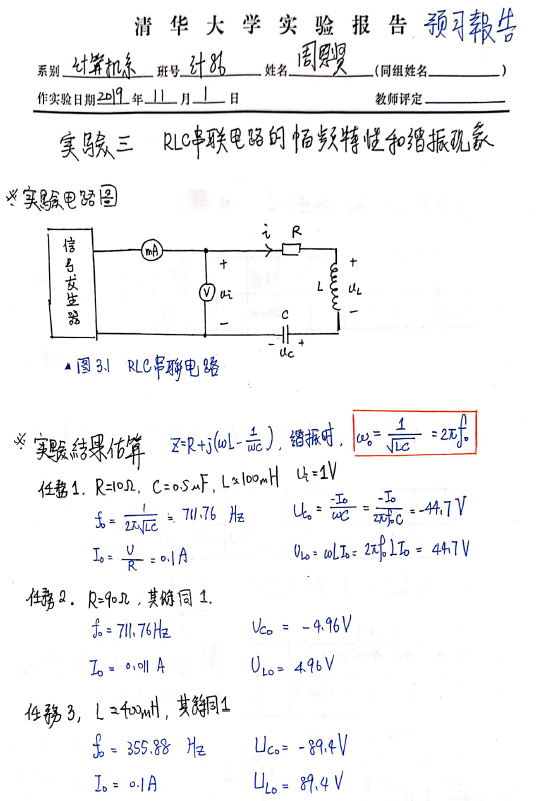 清华大学实验报告 预习報告
系别 计算机系 班号 计86 姓名 周恩贤 (同组姓名 )
作实验日期 2019 年 11 月 1 日 教师评定
实验三 RLC串联电路的幅频特性和谐振现象
※实验电路图
信号发生器
mA
i
R
+
V
ui
-
L
+
uL
-
C
- uC +
▲图3.1 RLC串联电路
※实验結果估算 Z=R+j(ωL-1/ωC), 谐振时, ω₀=1/√LC=2πf₀
任務1. R=10Ω, C=0.5μF, L≈100mH Ui=1V
f₀=1/2π√LC=711.76 Hz UC₀=-I₀/ωC=-I₀/2πf₀C=-44.7V
I₀=U/R=0.1A UL₀=ωLI₀=2πf₀LI₀=44.7V
任務2. R=90Ω, 其餘同1.
f₀=711.76Hz UC₀=-4.96V
I₀=0.011A UL₀=4.96V
任務3, L≈400mH, 其餘同1
f₀=355.88 Hz UC₀=-89.4V
I₀=0.1A UL₀=89.4V